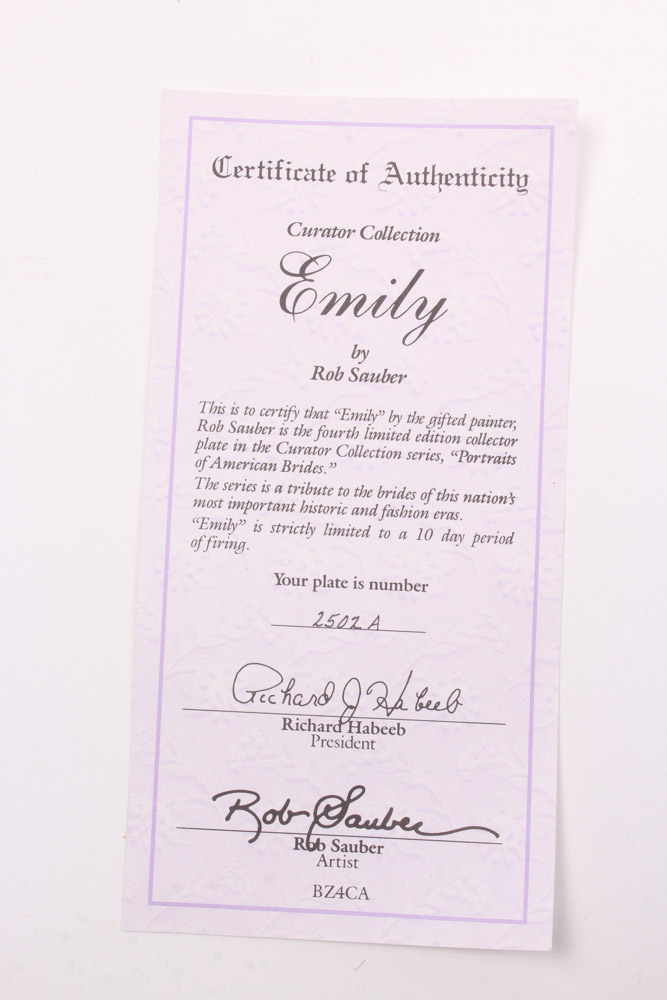 Certificate of Authenticity
Curator Collection
Emily
by
Rob Sauber
This is to certify that “Emily” by the gifted painter,
Rob Sauber is the fourth limited edition collector
plate in the Curator Collection series, “Portraits
of American Brides.”
The series is a tribute to the brides of this nation's
most important historic and fashion eras.
“Emily” is strictly limited to a 10 day period
of firing.
Your plate is number
2502 A
Richard J Habeeb
Richard Habeeb
President
Rob Sauber
Rob Sauber
Artist
BZ4CA